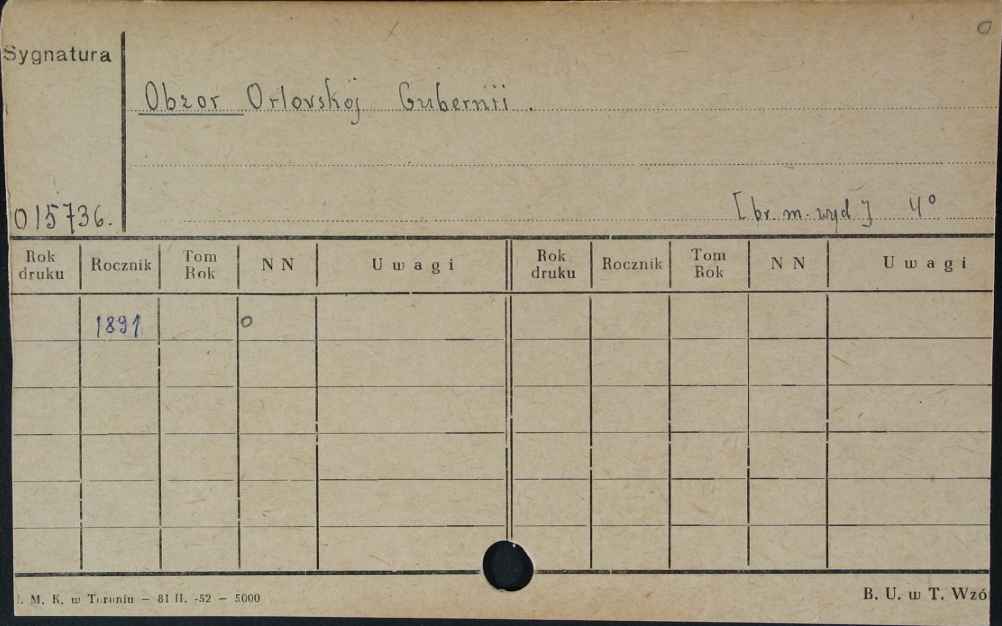 o
Sygnatura
Obzor Orlovskoj Gubernii.
015736.
[br. m. wyd] 4°
Rok druku Rocznik Tom Rok NN Uwagi Rok druku Rocznik Tom Rok NN Uwagi
1891 o
. M. K. w Toruniu — 81 II. -52 — 5000
B. U. w T. Wzó